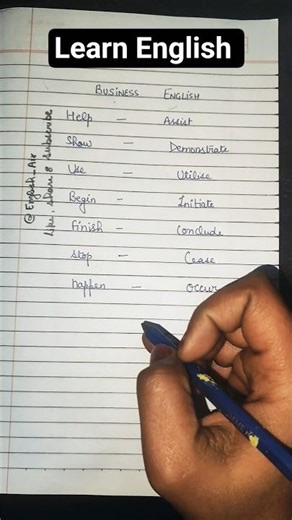 Learn English
BUSINESS ENGLISH
Help - Assist
Show - Demonstrate
Use - Utilise
Begin - Initiate
Finish - Conclude
Stop - Cease
happen - occur
@English_Air
like, share & subscribe